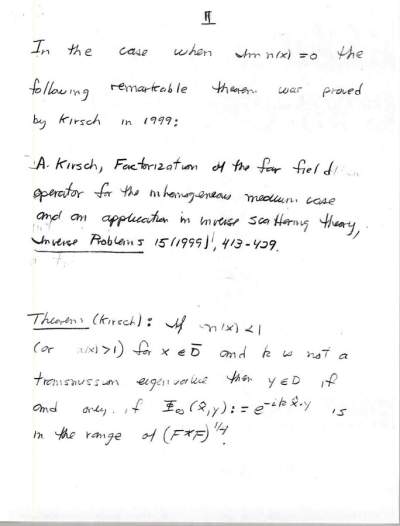 11
In the case when Im n(x) = 0 the
following remarkable theorem was proved
by Kirsch in 1999:
A. Kirsch, Factorization of the far field
operator for the inhomogeneous medium case
and an application in inverse scattering theory,
Inverse Problems 15 (1999), 413-429.
Theorem (Kirsch): If n(x) < 1
(or n(x) > 1) for x ∈ D̄ and k is not a
transmission eigenvalue then y ∈ D if
and only if Φ∞(x̂,y) := e^{-ikx̂·y} is
in the range of (F*F)^{1/4}.